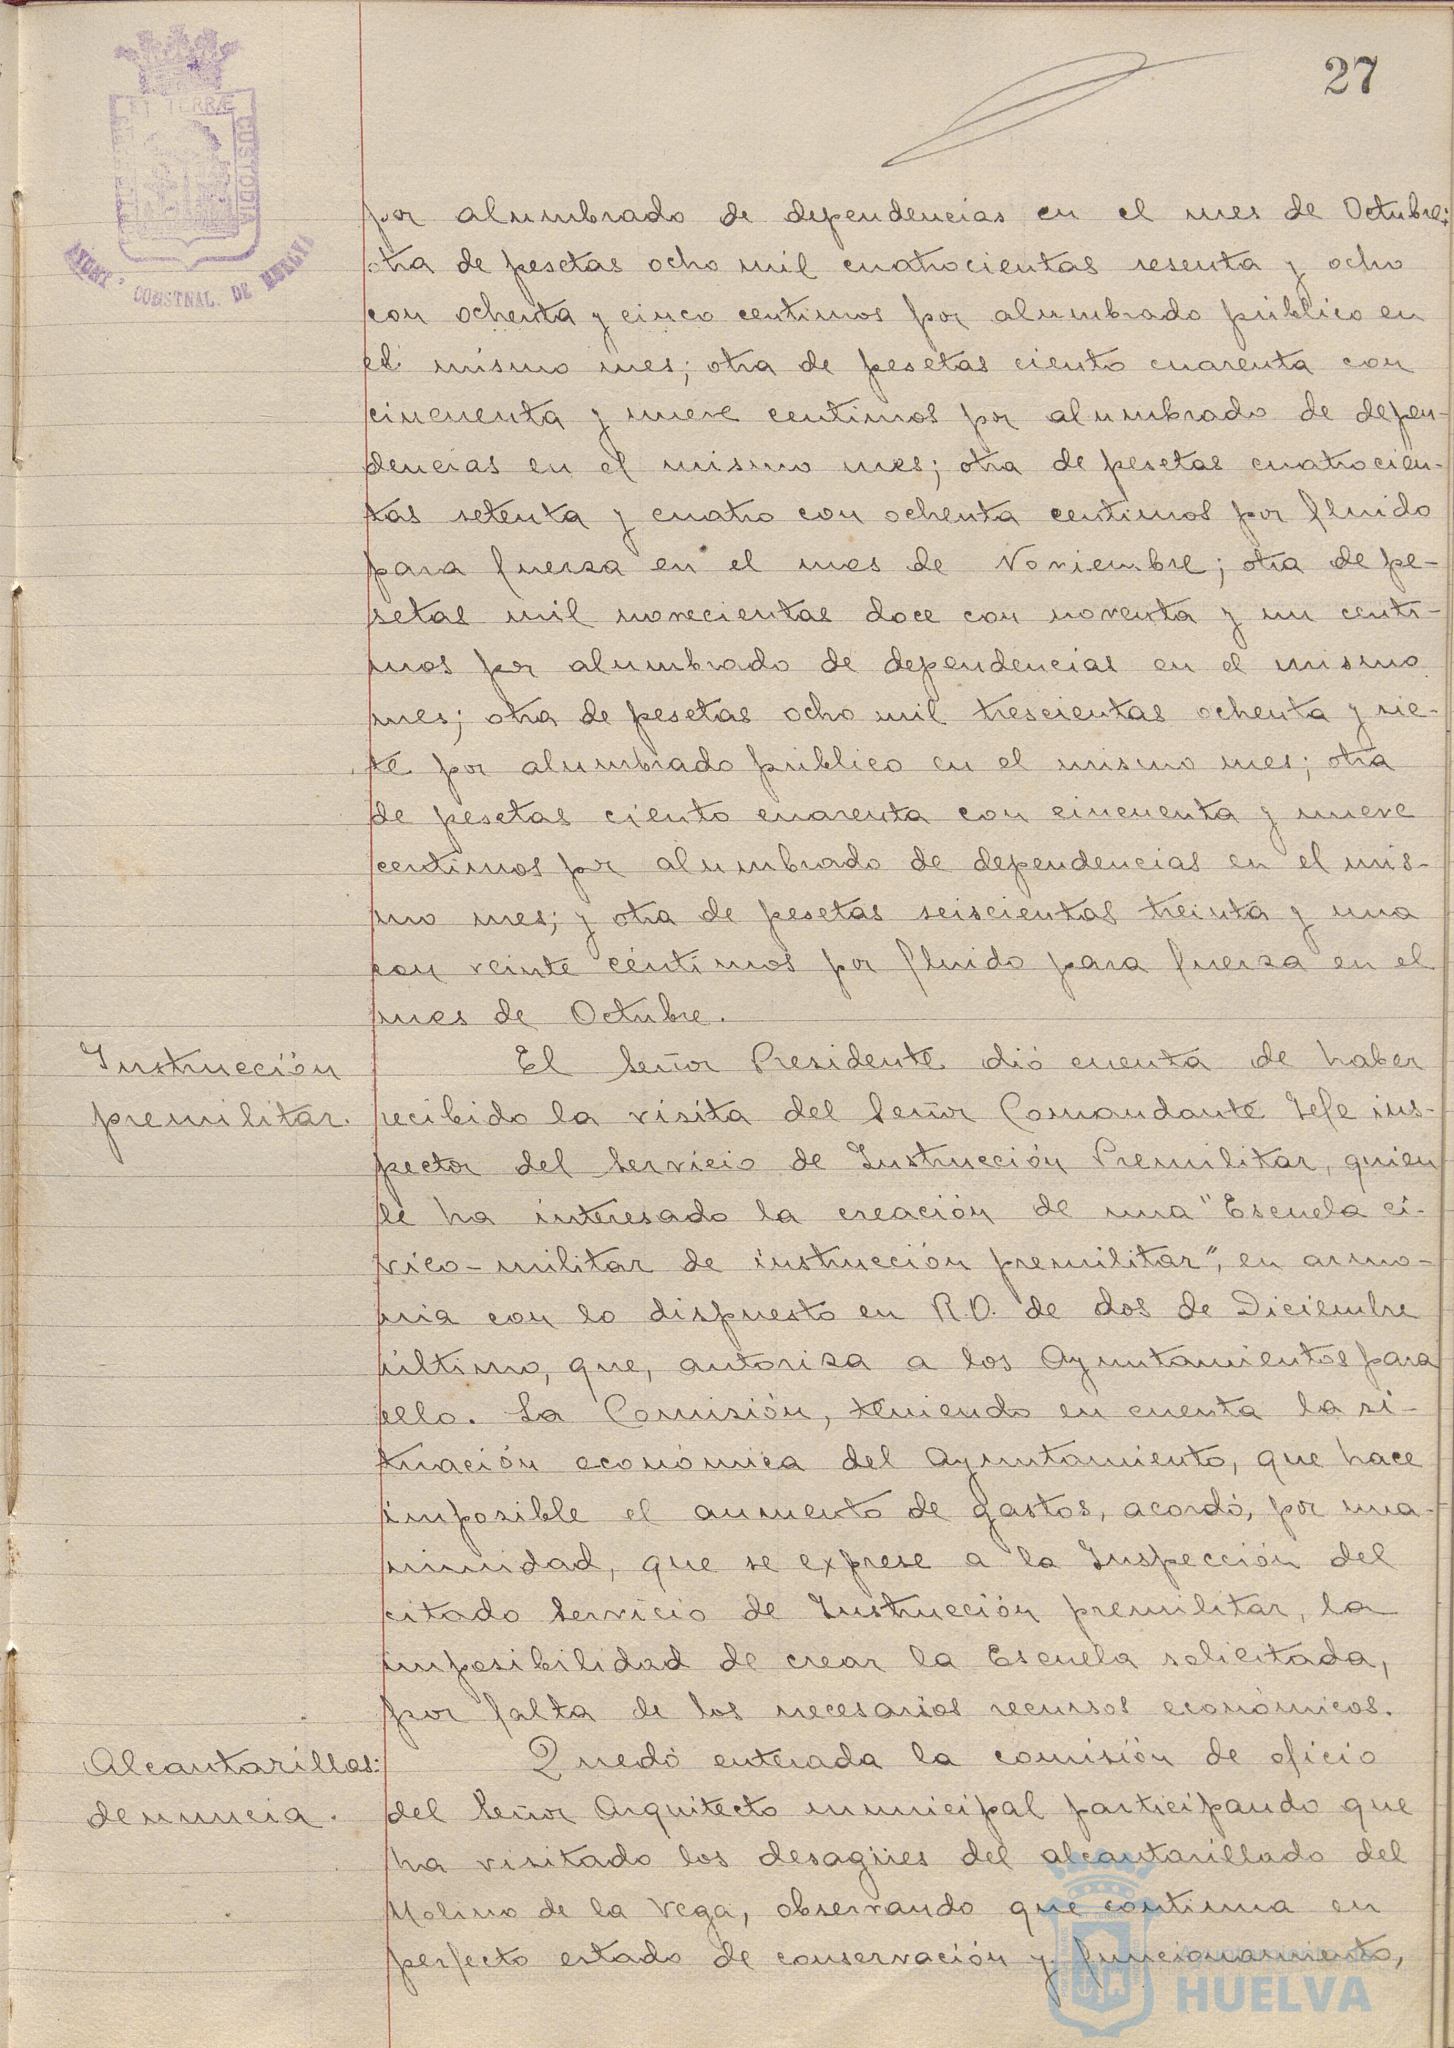 27
ET TERRÆ
CUSTODIA
AYUNT. CONSTNAL. DE HUELVA
por alumbrado de dependencias en el mes de Octubre;
otra de pesetas ocho mil cuatrocientas sesenta y ocho
con ochenta y cinco centimos por alumbrado público en
el mismo mes; otra de pesetas ciento cuarenta con
cincuenta y nueve centimos por alumbrado de depen-
dencias en el mismo mes; otra de pesetas cuatrocien-
tas setenta y cuatro con ochenta centimos por fluido
para fuerza en el mes de Noviembre; otra de pe-
setas mil novecientas doce con noventa y un centi-
mos por alumbrado de dependencias en el mismo
mes; otra de pesetas ocho mil trescientas ochenta y sie-
te por alumbrado público en el mismo mes; otra
de pesetas ciento cuarenta con cincuenta y nueve
centimos por alumbrado de dependencias en el mis-
mo mes; y otra de pesetas seiscientas treinta y una
con veinte céntimos por fluido para fuerza en el
mes de Octubre.
Instrucción
premilitar.
El Señor Presidente dió cuenta de haber
recibido la visita del Señor Comandante Jefe ins-
pector del Servicio de Instrucción Premilitar, quien
le ha interesado la creación de una "Escuela cí-
vico-militar de instrucción premilitar", en armo-
nia con lo dispuesto en R.O. de dos de Diciembre
último, que, autoriza a los Ayuntamientos para
ello. La Comisión, teniendo en cuenta la si-
tuación económica del Ayuntamiento, que hace
imposible el aumento de gastos, acordó, por una-
nimidad, que se exprese a la Inspección del
citado Servicio de Instrucción premilitar, la
imposibilidad de crear la Escuela solicitada,
por falta de los necesarios recursos económicos.
Alcantarillas:
denuncia.
Quedó enterada la comisión de oficio
del Señor Arquitecto municipal participando que
ha visitado los desagües del alcantarillado del
Molino de la Vega, observando que continua en
perfecto estado de conservación y funcionamiento,
HUELVA